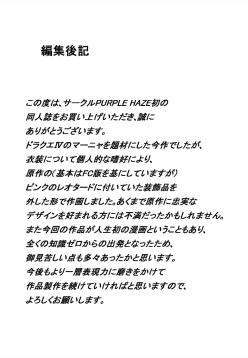 編集後記
この度は、サークルPURPLE HAZE初の
同人誌をお買い上げいただき、誠に
ありがとうございます。
ドラクエⅣのマーニャを題材にした今作でしたが、
衣装について個人的な嗜好により、
原作の（基本はFC版を基にしていますが）
ピンクのレオタードに付いていた装飾品を
外した形で作画しました。あくまで原作に忠実な
デザインを好まれる方には不満だったかもしれません。
また今回の作品が人生初の漫画ということもあり、
全くの知識ゼロからの出発となったため、
御見苦しい点も多々あったかと思います。
今後もより一層表現力に磨きをかけて
作品製作を続けていければと思いますので、
よろしくお願いします。